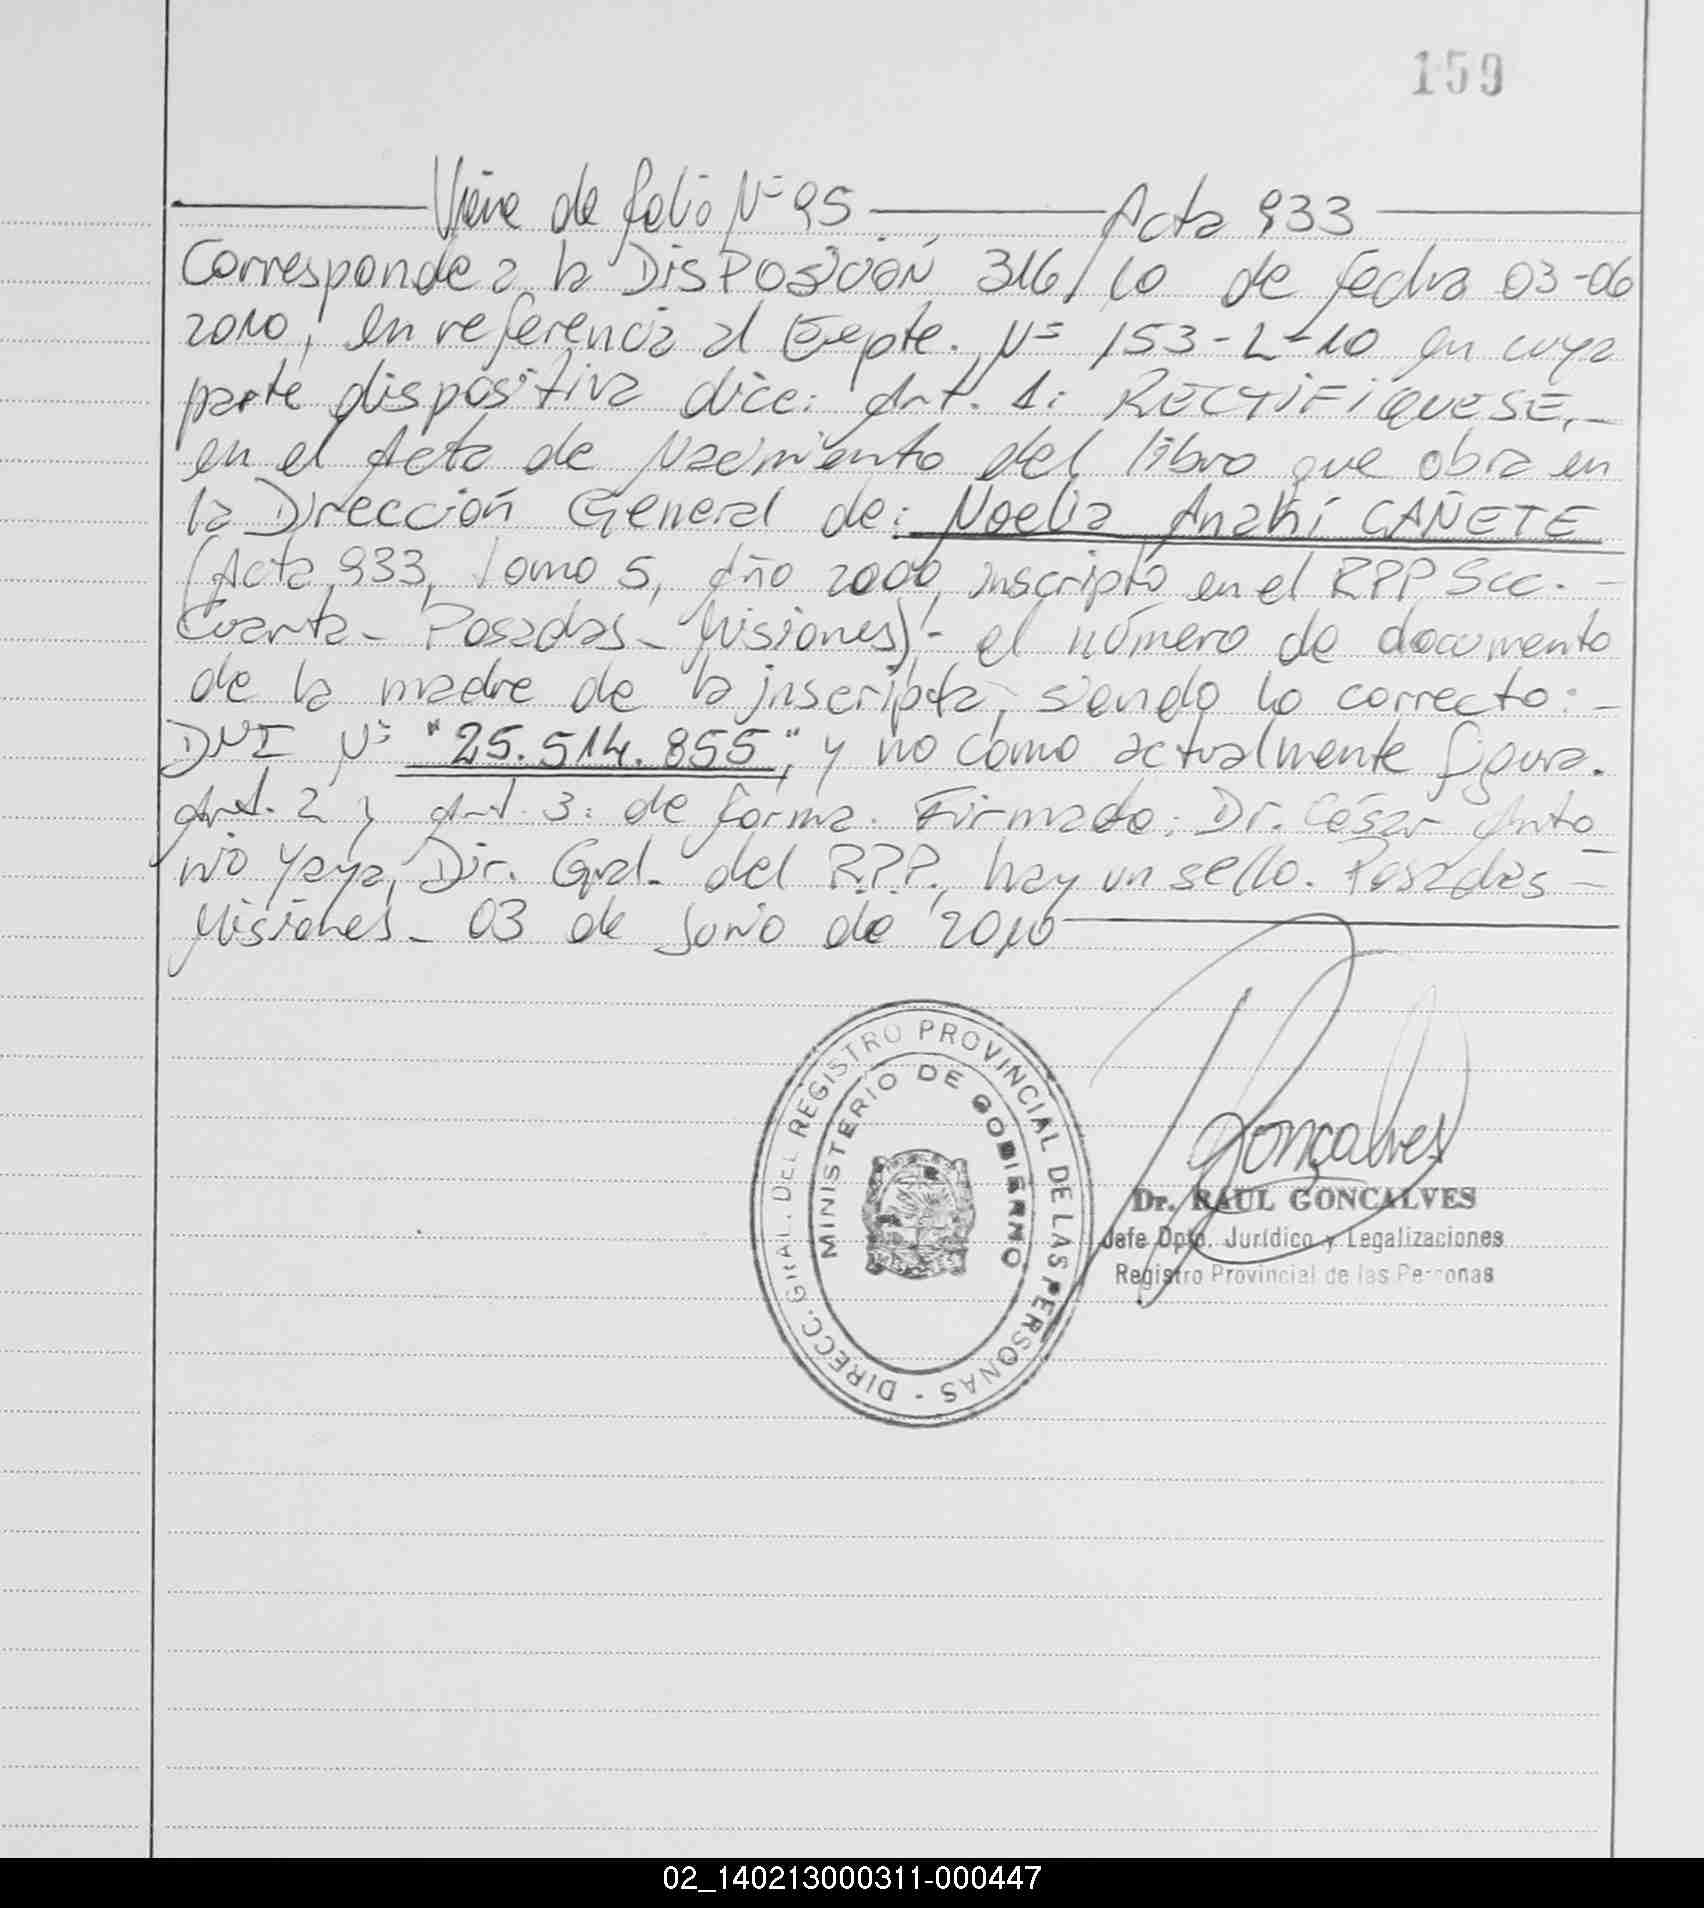 159
Viene de folio Nº 95 Acta 933
Corresponde a la DISPOSICIÓN 316/10 de fecha 03-06
2010, en referencia al Expte. Nº 153-L-10 en cuya
parte dispositiva dice: Art. 1: RECTIFIQUESE,-
en el Acta de Nacimiento del libro que obra en
la Dirección General de: Noelia Anahí CAÑETE
(Acta 933, Tomo 5, Año 2000, inscripto en el RPP Sec. -
Cuarta - Posadas - Misiones) - el número de documento
de la madre de la inscripta, siendo lo correcto: -
DNI Nº "25.514.855", y no como actualmente figura.
Art. 2 y Art. 3: de forma. Firmado: Dr. César Anto
nio Yaya, Dir. Gral. del R.P.P., hay un sello. Posadas -
Misiones - 03 de Junio de 2010
DIRECC. GRAL. DEL REGISTRO PROVINCIAL DE LAS PERSONAS -
MINISTERIO DE GOBIERNO
Gonçalves
Dr. RAUL GONCALVES
Jefe Dpto. Jurídico y Legalizaciones
Registro Provincial de las Personas
02_140213000311-000447